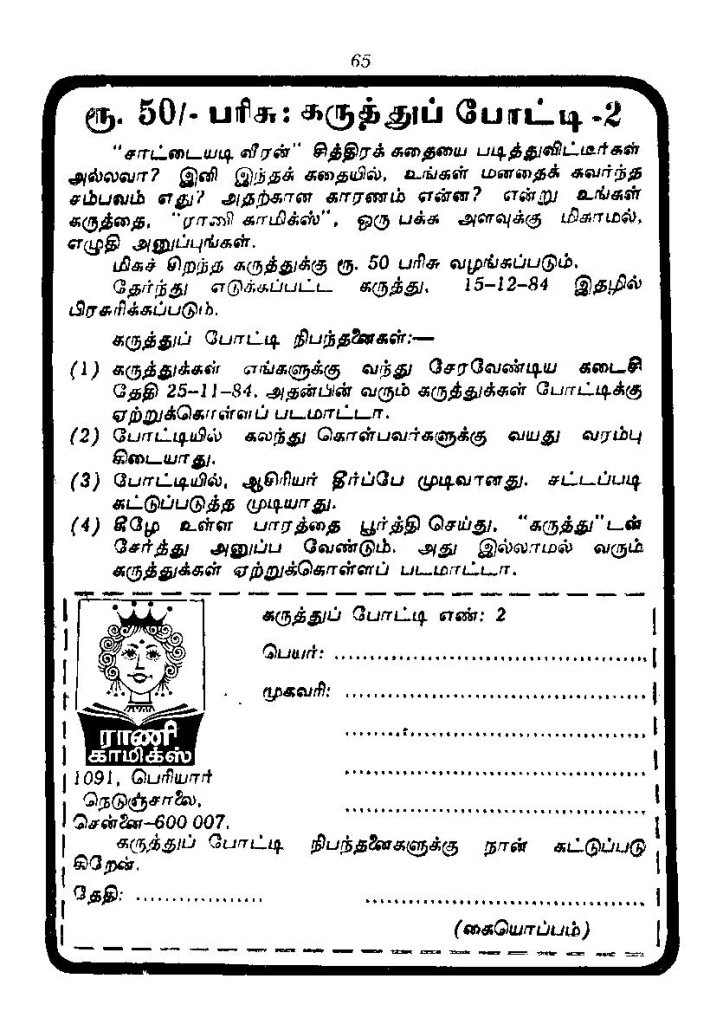 65
ரூ. 50/- பரிசு: கருத்துப் போட்டி -2
"சாட்டையடி வீரன்" சித்திரக் கதையை படித்துவிட்டீர்கள்
அல்லவா? இனி இந்தக் கதையில், உங்கள் மனதைக் கவர்ந்த
சம்பவம் எது? அதற்கான காரணம் என்ன? என்று உங்கள்
கருத்தை, "ராணி காமிக்ஸ்", ஒரு பக்க அளவுக்கு மிகாமல்,
எழுதி அனுப்புங்கள்.
மிகச் சிறந்த கருத்துக்கு ரூ. 50 பரிசு வழங்கப்படும்.
தேர்ந்து எடுக்கப்பட்ட கருத்து, 15-12-84 இதழில்
பிரசுரிக்கப்படும்.
கருத்துப் போட்டி நிபந்தனைகள்:—
(1) கருத்துக்கள் எங்களுக்கு வந்து சேரவேண்டிய கடைசி
தேதி 25-11-84. அதன்பின் வரும் கருத்துக்கள் போட்டிக்கு
ஏற்றுக்கொள்ளப் படமாட்டா.
(2) போட்டியில் கலந்து கொள்பவர்களுக்கு வயது வரம்பு
கிடையாது.
(3) போட்டியில், ஆசிரியர் தீர்ப்பே முடிவானது. சட்டப்படி
கட்டுப்படுத்த முடியாது.
(4) கீழே உள்ள பாரத்தை பூர்த்தி செய்து, "கருத்து"டன்
சேர்த்து அனுப்ப வேண்டும். அது இல்லாமல் வரும்
கருத்துக்கள் ஏற்றுக்கொள்ளப் படமாட்டா.
கருத்துப் போட்டி எண்: 2
பெயர்: ........................................
முகவரி: ........................................
ராணி
காமிக்ஸ்
1091, பெரியார்
நெடுஞ்சாலை,
சென்னை-600 007.
கருத்துப் போட்டி நிபந்தனைகளுக்கு நான் கட்டுப்படு
கிறேன்.
தேதி: .................. ........................................
(கையொப்பம்)